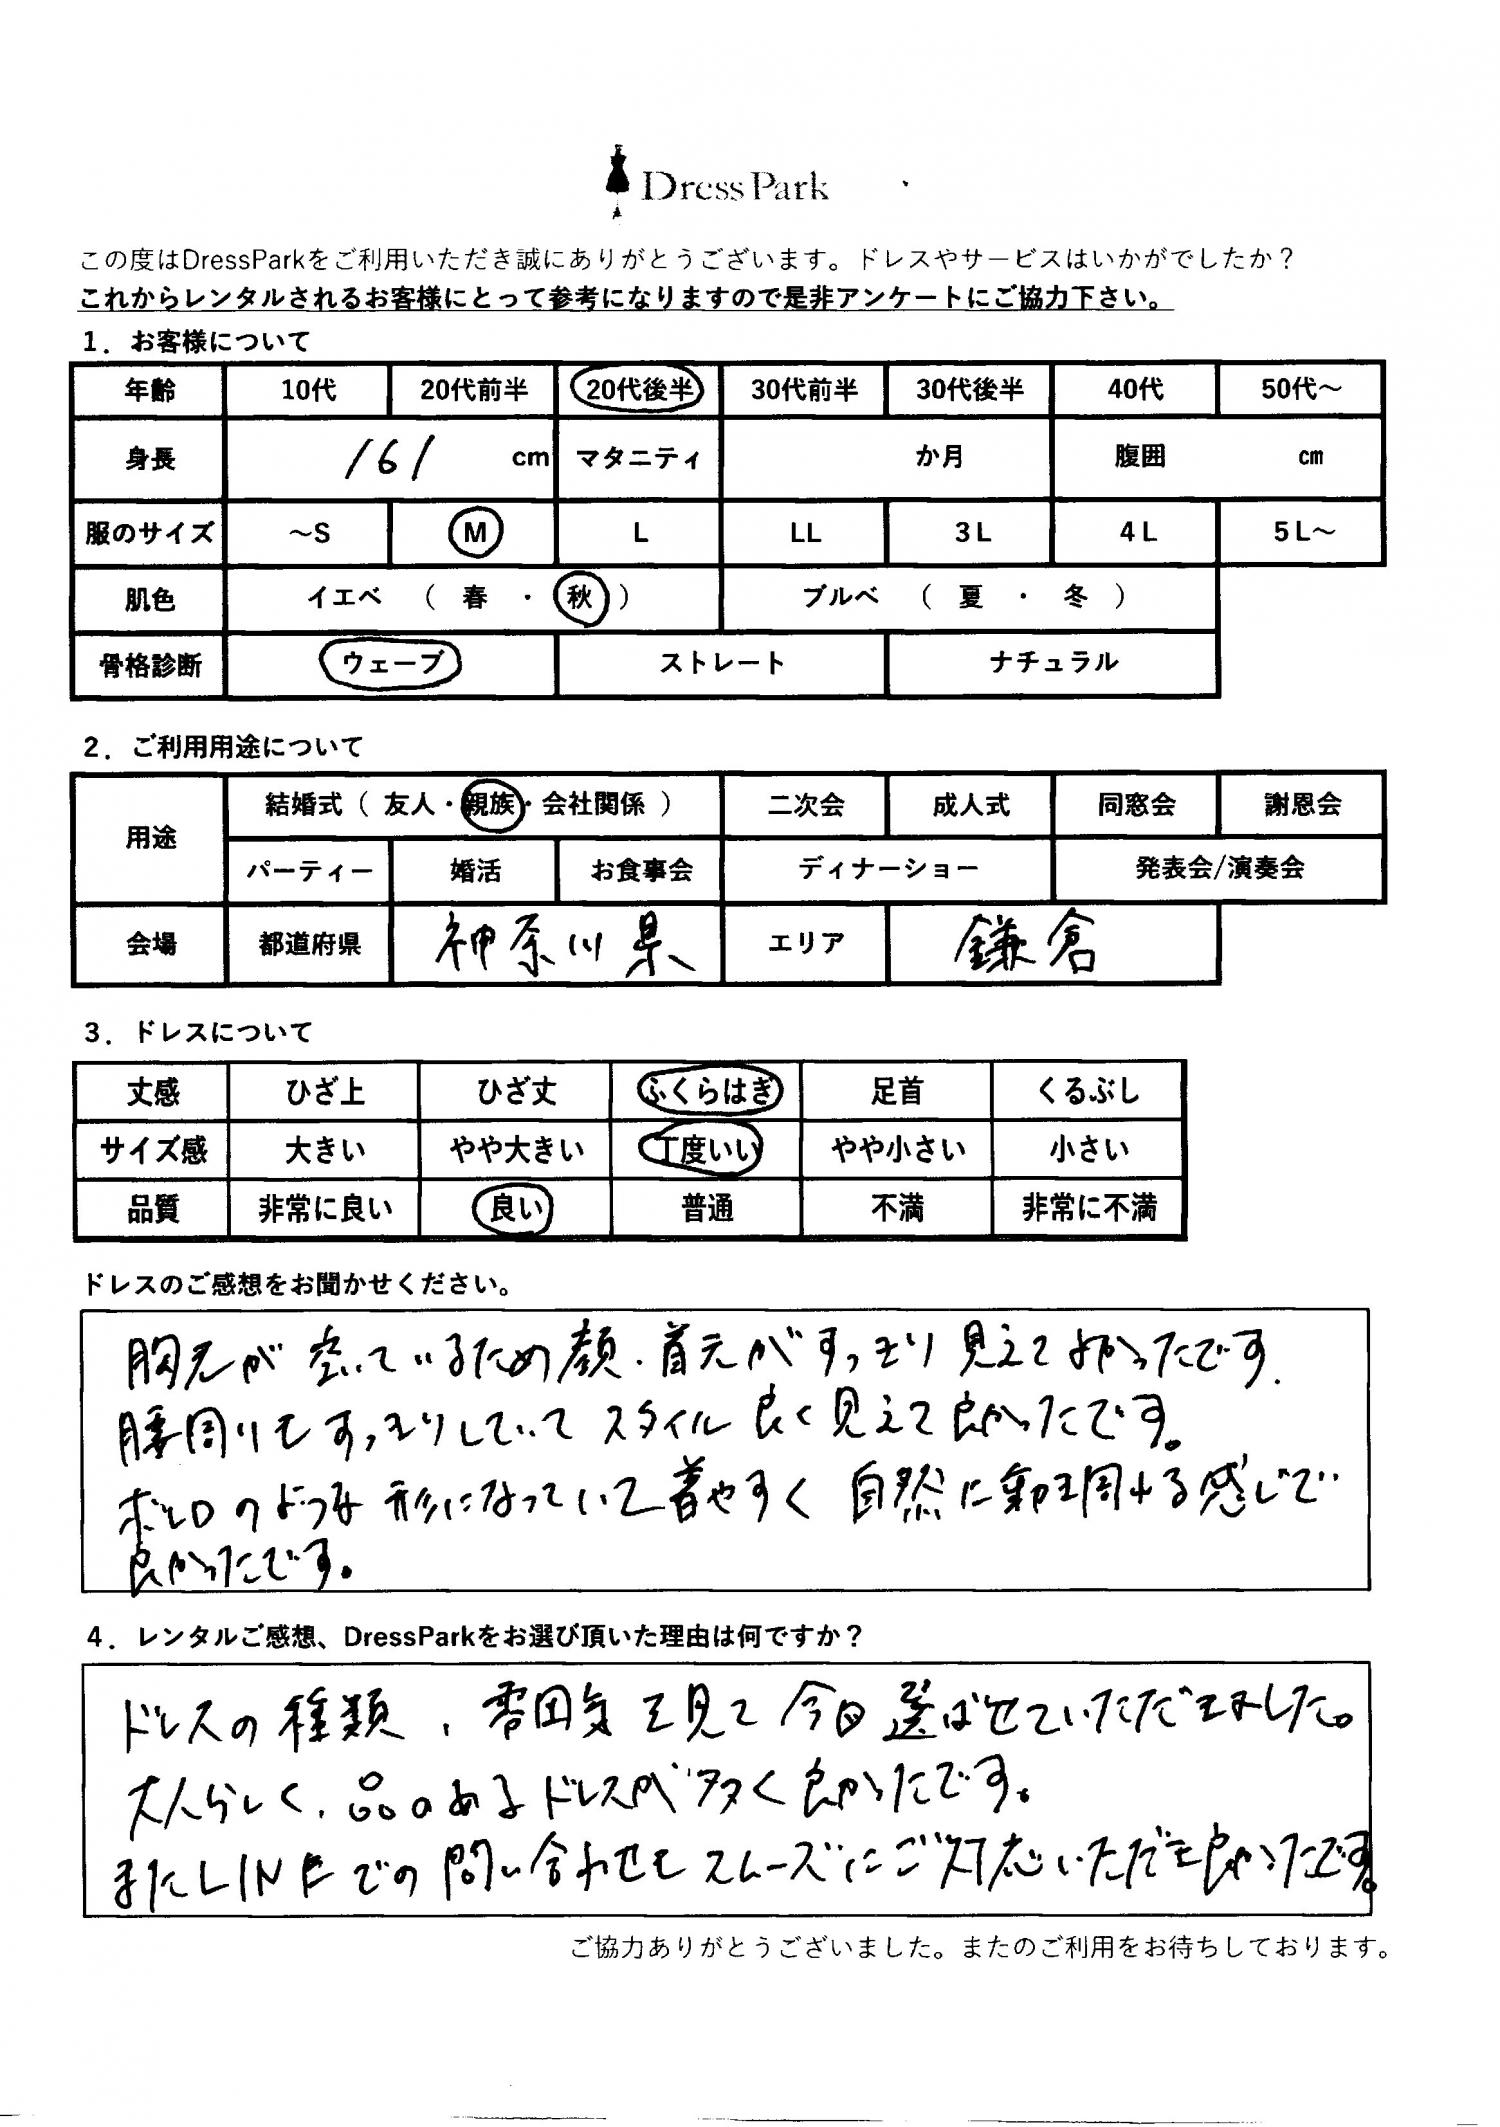 Dress Park
この度はDressParkをご利用いただき誠にありがとうございます。ドレスやサービスはいかがでしたか？
これからレンタルされるお客様にとって参考になりますので是非アンケートにご協力下さい。
1．お客様について
年齢 10代 20代前半 20代後半 30代前半 30代後半 40代 50代～
身長 161 cm マタニティ か月 腹囲 cm
服のサイズ ～S M L LL 3L 4L 5L～
肌色 イエベ （ 春 ・ 秋 ） ブルベ （ 夏 ・ 冬 ）
骨格診断 ウェーブ ストレート ナチュラル
2．ご利用用途について
用途 結婚式（ 友人・親族・会社関係 ） 二次会 成人式 同窓会 謝恩会
パーティー 婚活 お食事会 ディナーショー 発表会/演奏会
会場 都道府県 神奈川県 エリア 鎌倉
3．ドレスについて
丈感 ひざ上 ひざ丈 ふくらはぎ 足首 くるぶし
サイズ感 大きい やや大きい 丁度いい やや小さい 小さい
品質 非常に良い 良い 普通 不満 非常に不満
ドレスのご感想をお聞かせください。
胸元が空いているため顔・首元がすっきり見えてよかったです.
腰周りもすっきりしていてスタイル良く見えて良かったです。
ボレロのような形になっていて着やすく自然に動き周れる感じで
良かったです。
4．レンタルご感想、DressParkをお選び頂いた理由は何ですか？
ドレスの種類、雰囲気を見て今回選ばせていただきました。
大人らしく、品のあるドレスが多く良かったです。
またLINEでの問い合わせもスムーズにご対応いただき良かったです。
ご協力ありがとうございました。またのご利用をお待ちしております。